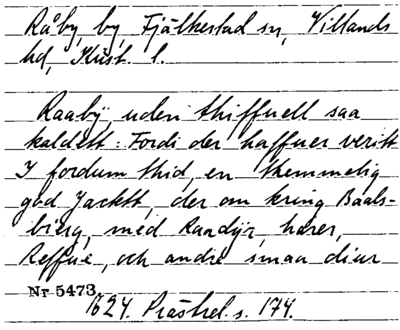 Råby, by, Fjälkestad sn, Villands
hd, Krist. l.
Raaby, uden thiffuell saa
kaldett: Fordi der haffuer veritt
I fordum thid, en themmelig
god Jacktt, der om kring Baals-
bierg, med Raadÿr, harer,
Reffue, och andre smaa diur
Nr 5473
1624. Prästrel. s. 174.